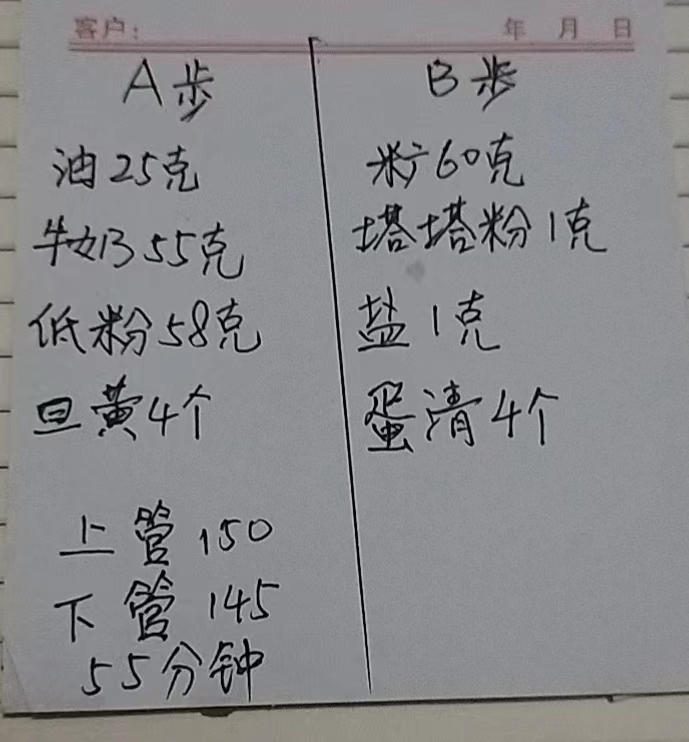 客户：
年 月 日
A步
油25克
牛奶55克
低粉58克
旦黄4个
上管150
下管145
55分钟
B步
粆60克
塔塔粉1克
盐1克
蛋清4个